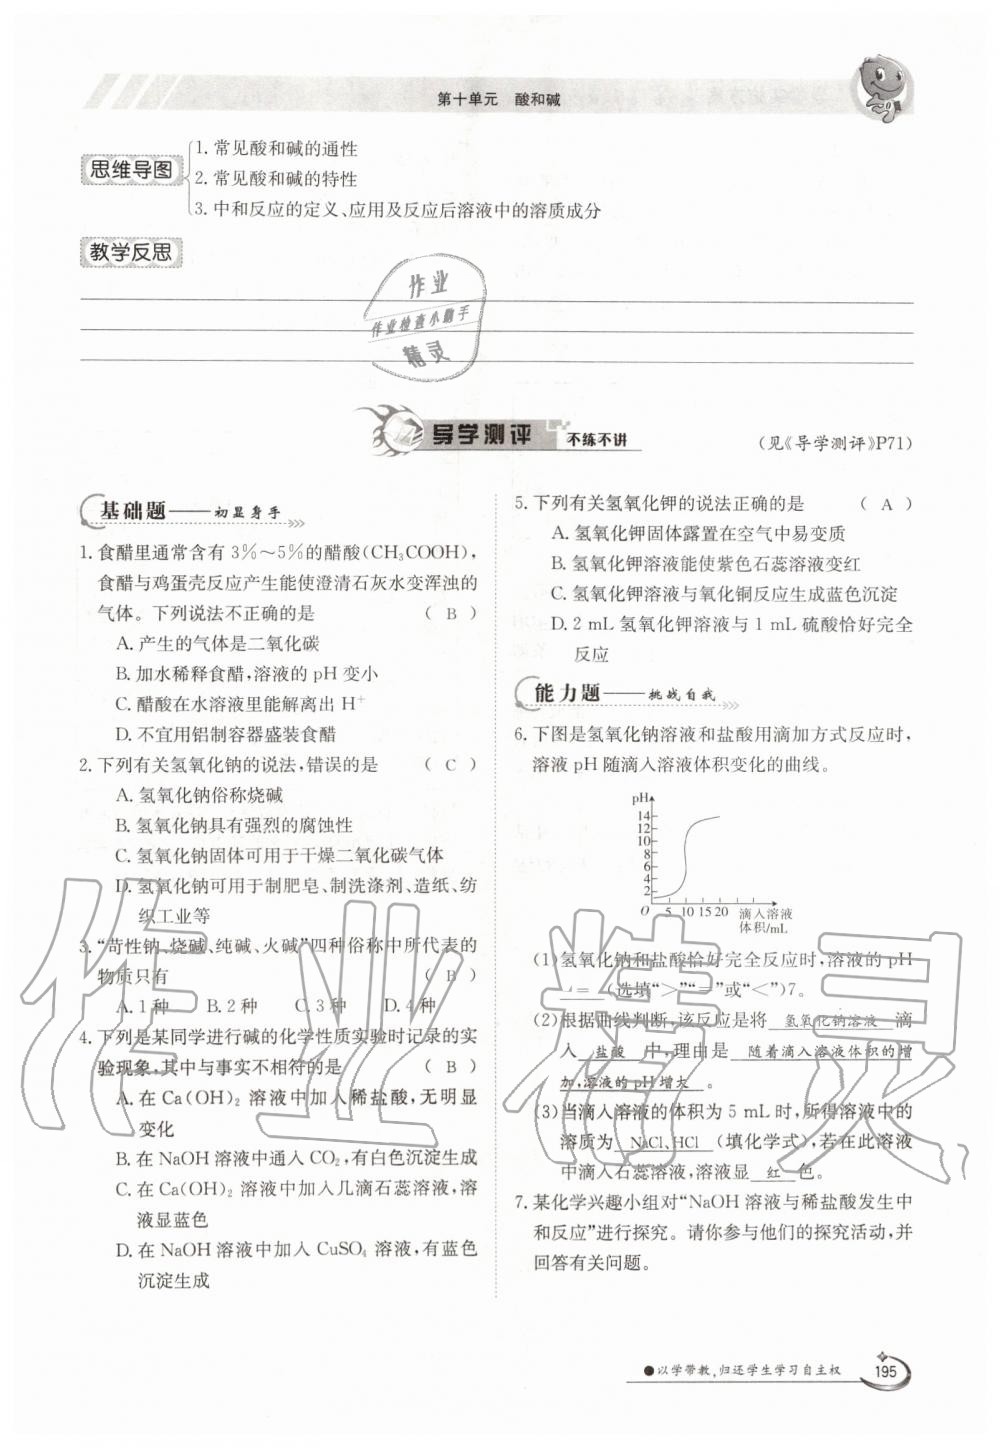 第十单元 酸和碱
思维导图
1.常见酸和碱的通性
2.常见酸和碱的特性
3.中和反应的定义、应用及反应后溶液中的溶质成分
教学反思
作业
作业检查小助手
精灵
导学测评 不练不讲
(见《导学测评》P71)
基础题——初显身手
1.食醋里通常含有3%～5%的醋酸(CH₃COOH),
食醋与鸡蛋壳反应产生能使澄清石灰水变浑浊的
气体。下列说法不正确的是 ( B )
A.产生的气体是二氧化碳
B.加水稀释食醋,溶液的pH变小
C.醋酸在水溶液里能解离出H⁺
D.不宜用铝制容器盛装食醋
2.下列有关氢氧化钠的说法,错误的是 ( C )
A.氢氧化钠俗称烧碱
B.氢氧化钠具有强烈的腐蚀性
C.氢氧化钠固体可用于干燥二氧化碳气体
D.氢氧化钠可用于制肥皂、制洗涤剂、造纸、纺
织工业等
3.“苛性钠、烧碱、纯碱、火碱”四种俗称中所代表的
物质只有 ( B )
A.1种 B.2种 C.3种 D.4种
4.下列是某同学进行碱的化学性质实验时记录的实
验现象,其中与事实不相符的是 ( B )
A.在Ca(OH)₂溶液中加入稀盐酸,无明显
变化
B.在NaOH溶液中通入CO₂,有白色沉淀生成
C.在Ca(OH)₂溶液中加入几滴石蕊溶液,溶
液显蓝色
D.在NaOH溶液中加入CuSO₄溶液,有蓝色
沉淀生成
5.下列有关氢氧化钾的说法正确的是 ( A )
A.氢氧化钾固体露置在空气中易变质
B.氢氧化钾溶液能使紫色石蕊溶液变红
C.氢氧化钾溶液与氧化铜反应生成蓝色沉淀
D.2 mL氢氧化钾溶液与1 mL硫酸恰好完全
反应
能力题——挑战自我
6.下图是氢氧化钠溶液和盐酸用滴加方式反应时,
溶液pH随滴入溶液体积变化的曲线。
pH
14
12
10
8
6
4
2
O 5 10 15 20 滴入溶液
体积/mL
(1)氢氧化钠和盐酸恰好完全反应时,溶液的pH
=(选填“>”“=”或“<”)7。
(2)根据曲线判断,该反应是将 氢氧化钠溶液 滴
入 盐酸 中,理由是 随着滴入溶液体积的增
加,溶液的pH增大 。
(3)当滴入溶液的体积为5 mL时,所得溶液中的
溶质为 NaCl、HCl (填化学式),若在此溶液
中滴入石蕊溶液,溶液显 红 色。
7.某化学兴趣小组对“NaOH溶液与稀盐酸发生中
和反应”进行探究。请你参与他们的探究活动,并
回答有关问题。
作业精灵
●以学带教,归还学生学习自主权
195